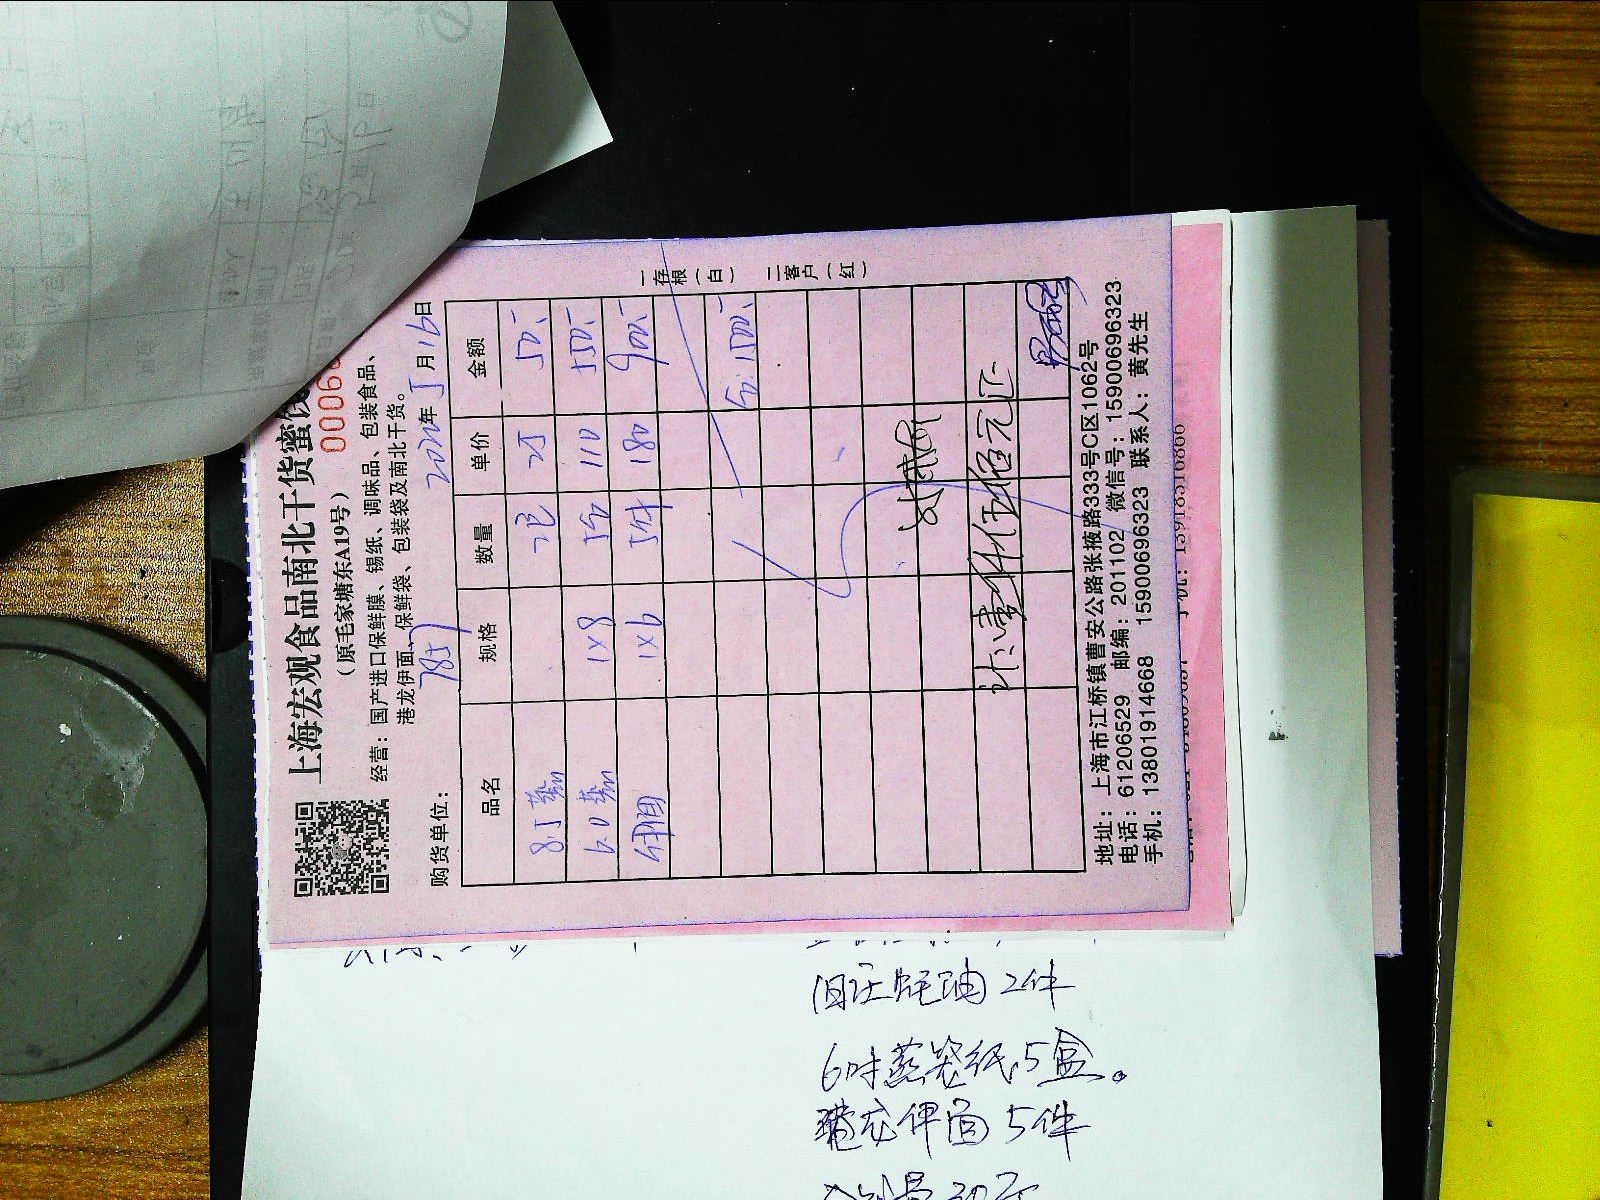 上海宏观食品南北干货蜜
0006
（原毛家塘东A19号）
经营：国产进口保鲜膜、锡纸、调味品、包装食品、
港龙伊面、保鲜袋、包装袋及南北干货。
购货单位： 785 2022年5月16日
品名 规格 数量 单价 金额
8.5蒸 2 25 50.-
6.0蒸 1×8 5 110 550.-
伊面 1×6 5件 180 900.-
合:1500.-
一存根（白） 二客户（红）
壹仟伍佰元正
地址：上海市江桥镇曹安公路张掖路333号C区1062号
电话：61206529 邮编：201102 微信号：15900696323
手机：13801914668 15900696323 联系人：黄先生
手机：13918316866
旧庄蚝油 2件
6吋蒸笼纸 5盒。
伊面 5件